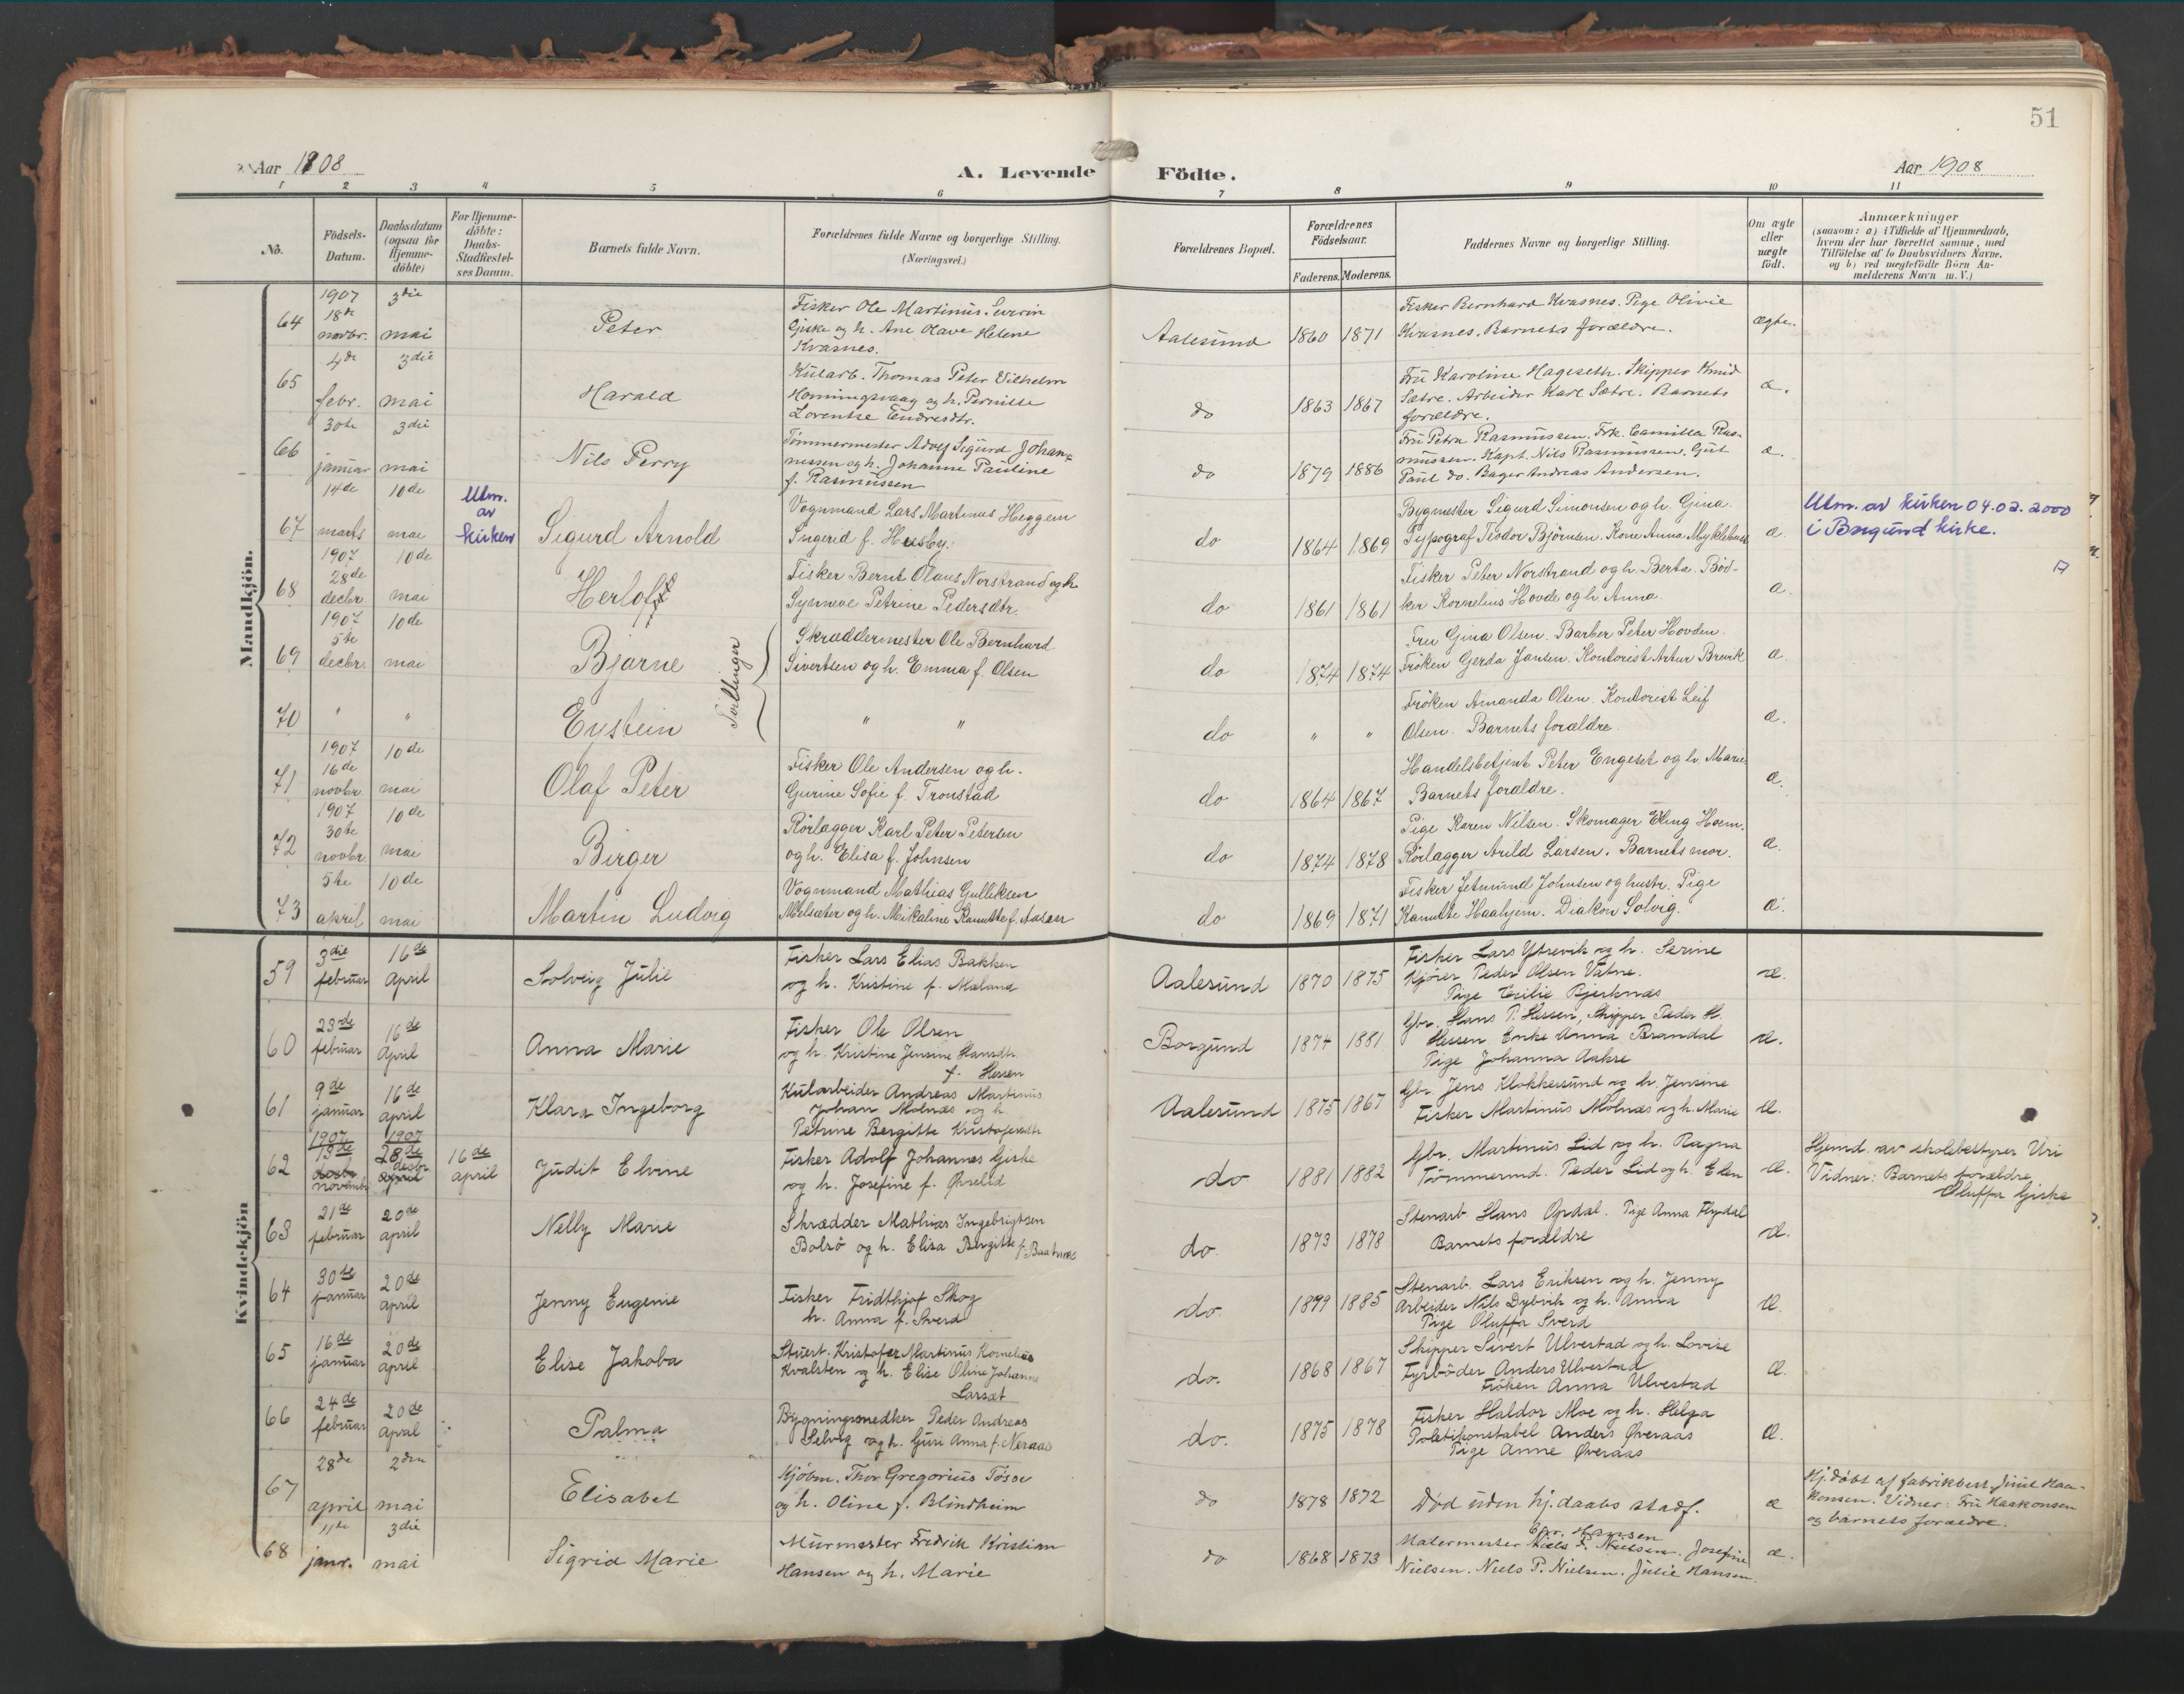 51
Aar 1908
A. Levende Födte.
Aar 1908
1 2 3 4 5 6 7 8 9 10 11
No.
Födsels-Datum.
Daabsdatum (ogsaa for Hjemme-döbte)
For Hjemme-döbte: Daabs-Stadfæstel-ses Datum.
Barnets fulde Navn.
Forældrenes fulde Navne og borgerlige Stilling. (Næringsvei.)
Forældrenes Bopæl.
Forældrenes Födselsaar.
Faderens. Moderens.
Faddernes Navne og borgerlige Stilling.
Om ægte eller uægte födt.
Anmærkninger
(saasom: a) i Tilfælde af Hjemmedaab, hvem der har forrettet samme, med Tilföielse af to Daabsvidners Navne, og b) ved uægtefödte Börn An-melderens Navn m. V.)
Mandkjön.
64
1907 18de novbr.
3die mai
Peter
Fisker Ole Martinus Severin
Giske og h. Ane Olave Helene
Kvasnes.
Aalesund
1860 1871
Fisker Bernhard Kvasnes. Pige Olivie
Kvasnes. Barnets forældre.
ægte.
65
4de febr.
3die mai
Harald
Kularb. Thomas Peter Vilhelm
Honningsvaag og h. Pernille
Lorentse Endresdtr.
do
1863 1867
Fru Karoline Hageseth. Skipper Knud
Sætre. Arbeider Karl Sætre. Barnets
forældre.
æ.
66
30te januar
3die mai
Nils Perry
Tømmermester Adolf Sigurd Johan-
nessen og h. Johanne Pauline
f. Rasmussen
do
1879 1886
Fru Petra Rasmussen. Frk. Camilla Ras-
mussen. Kapt. Nils Rasmussen. Gut
Paul do. Bager Andreas Andersen.
æ.
67
14de marts
10de mai
Utm. av kirken
Sigurd Arnold
Vognmand Lars Martinus Heggem
Ingerid f. Husby.
do
1864 1869
Bygmester Sigurd Simonsen og h. Gina
Typograf Teodor Björnsen. Kone Anna Myklebust
æ
Utm. av kirken 04.02.2000
i Borgund kirke.
68
1907 28de decbr.
10de mai
Herlof
Fisker Bernt Olaus Norstrand og h
Synneve Petrine Pedersdtr.
do
1861 1861
Fisker Peter Norstrand og h. Berta. Bød-
ker Kornelius Hovde og h. Anna.
æ.
69
1907 5te decbr.
10de mai
Bjarne
Tvillinger
Skræddermester Ole Bernhard
Sivertsen og h. Emma f. Olsen
do
1874 1874
Fru Gina Olsen. Barber Peter Hovden.
Fröken Gerda Jansen. Kontorist Artur Brevik
æ.
70
" "
Eystein
" "
do
" "
Fröken Amanda Olsen. Kontorist Leif
Olsen. Barnets forældre.
æ.
71
1907 16de novbr
10de mai
Olaf Peter
Fisker Ole Andersen og h.
Gurine Sofie f. Tronstad
do
1864 1867
Handelsbetjent Peter Engeset og h. Marie
Barnets forældre.
æ.
72
1907 30te novbr.
10de mai
Birger
Rörlægger Karl Peter Petersen
og h. Elisa f. Johnsen
do
1874 1878
Pige Karen Nilsen. Skomager Elling Hoem.
Rörlægger Arild Larsen. Barnets mor.
æ.
73
5te april
10de mai
Martin Ludvig
Vognmand Mathias Gulliksen
Melsæter og h. Mikaline Kanutte f. Aasen
do
1869 1871
Fisker Jetmund Johnsen og hustr. Pige
Kanutte Haahjem. Diakon Solvig.
æ.
Kvindekjön
59
3die februar
16de April
Solveig Julie
Fisker Lars Elias Bakken
og h. Kristine f. Maland
Aalesund
1870 1875
Fisker Lars Ytrevik og h. Serine
Kjörer Peder Olsen Vatne.
Pige Cecilie Bjerknæs
æ.
60
23de februar
16de April
Anna Marie
Fisker Ole Olsen
og h. Kristine Jensine Hansdtr.
f. Hessen
Borgund
1874 1881
Gbr. Hans P. Hessen, Skipper Peder H.
Hessen Enke Anna Brandal
Pige Johanna Aakre
æ.
61
9de januar
16de april
Klara Ingeborg
Kularbeider Andreas Martinus
Johan Molnæs og h
Petrine Bergitte Kristofersdtr
Aalesund
1875 1867
Gbr Jens Klokkersund og h. Jensine
Fisker Martinus Molnæs og h. Marie
æ.
62
1907 13de novembr
1907 28de decbr
16de april
Judit Elvine
Fisker Adolf Johannes Giske
og h. Josefine f. Øvrelid
do
1881 1882
Gbr. Martinus Lid og h. Ragna
Tømmermd. Peder Lid og h. Elen
æ.
Hjemd. av skolebestyrer Uri
Vidner: Barnets forældre
Oluffa Giske
63
21de februar
20de april
Nelly Marie
Skrædder Mathias Ingebrigtsen
Bolsö og h. Elisa Bergitte f. Baatnæs
do.
1873 1878
Stenarb Hans Opdal. Pige Anna Flydal
Barnets forældre
æ.
64
30te januar
20de april
Jenny Eugenie
Fisker Fridthjof Skog
h. Anna f. Sverd
do.
1899 1885
Stenarb. Lars Eriksen og h. Jenny
Arbeider Nils Dybvik og h. Anna
Pige Oluffa Sverd
æ.
65
16de januar
20de april
Elise Jakoba
Stuert. Kristofer Martinus Kornelius
Kvalsten og h. Elise Oline Johanne
Larsæt
do.
1868 1867
Skipper Sivert Ulvestad og h. Lovise
Fyrböder Anders Ulvestad
Fröken Anna Ulvestad
æ.
66
24de februar
20de april
Palma
Bygningssnedker Peder Andreas
Selvig og h. Guri Anna f. Neraas
do.
1875 1878
Fisker Haldor Moe og h. Helga
Politikonstabel Anders Øveraas
Pige Anne Øveraas
æ.
67
28de april
2den mai
Elisabet
Kjøbm. Thor Gregorius Tösse
og h. Oline f. Blindheim
do
1878 1872
Død uden hj.daabs stadf.
æ
Hj.døbt af fabrikbest. Juul Haa-
konsen. Vidner: Fru Haakonsen
og barnets forældre.
68
11te janr.
3die mai
Sigrid Marie
Murmester Fredrik Kristian
Hansen og h. Marie
do
1868 1873
Chr. Hansen
Malermester Niels P. Nielsen. Josefine
Nielsen. Niels P. Nielsen. Julie Hansen.
æ.